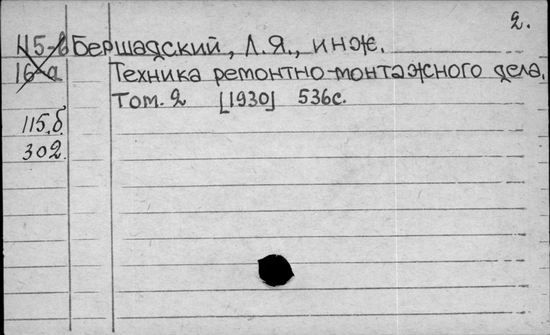 2.
115-б Бершадский, Л.Я., инж.
16-а Техника ремонтно-монтажного дела.
Том. 2 [1930] 536с.
115.б.
302.